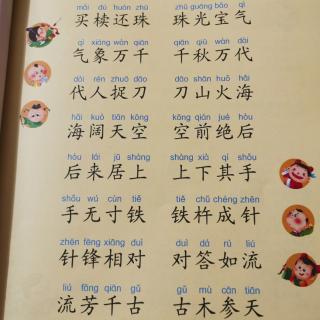 mǎi dú huán zhū zhū guāng bǎo qì
买椟还珠 珠光宝气
qì xiàng wàn qiān qiān qiū wàn dài
气象万千 千秋万代
dài rén zhuō dāo dāo shān huǒ hǎi
代人捉刀 刀山火海
hǎi kuò tiān kōng kōng qián jué hòu
海阔天空 空前绝后
hòu lái jū shàng shàng xià qí shǒu
后来居上 上下其手
shǒu wú cùn tiě tiě chǔ chéng zhēn
手无寸铁 铁杵成针
zhēn fēng xiāng duì duì dá rú liú
针锋相对 对答如流
liú fāng qiān gǔ gǔ mù cān tiān
流芳千古 古木参天